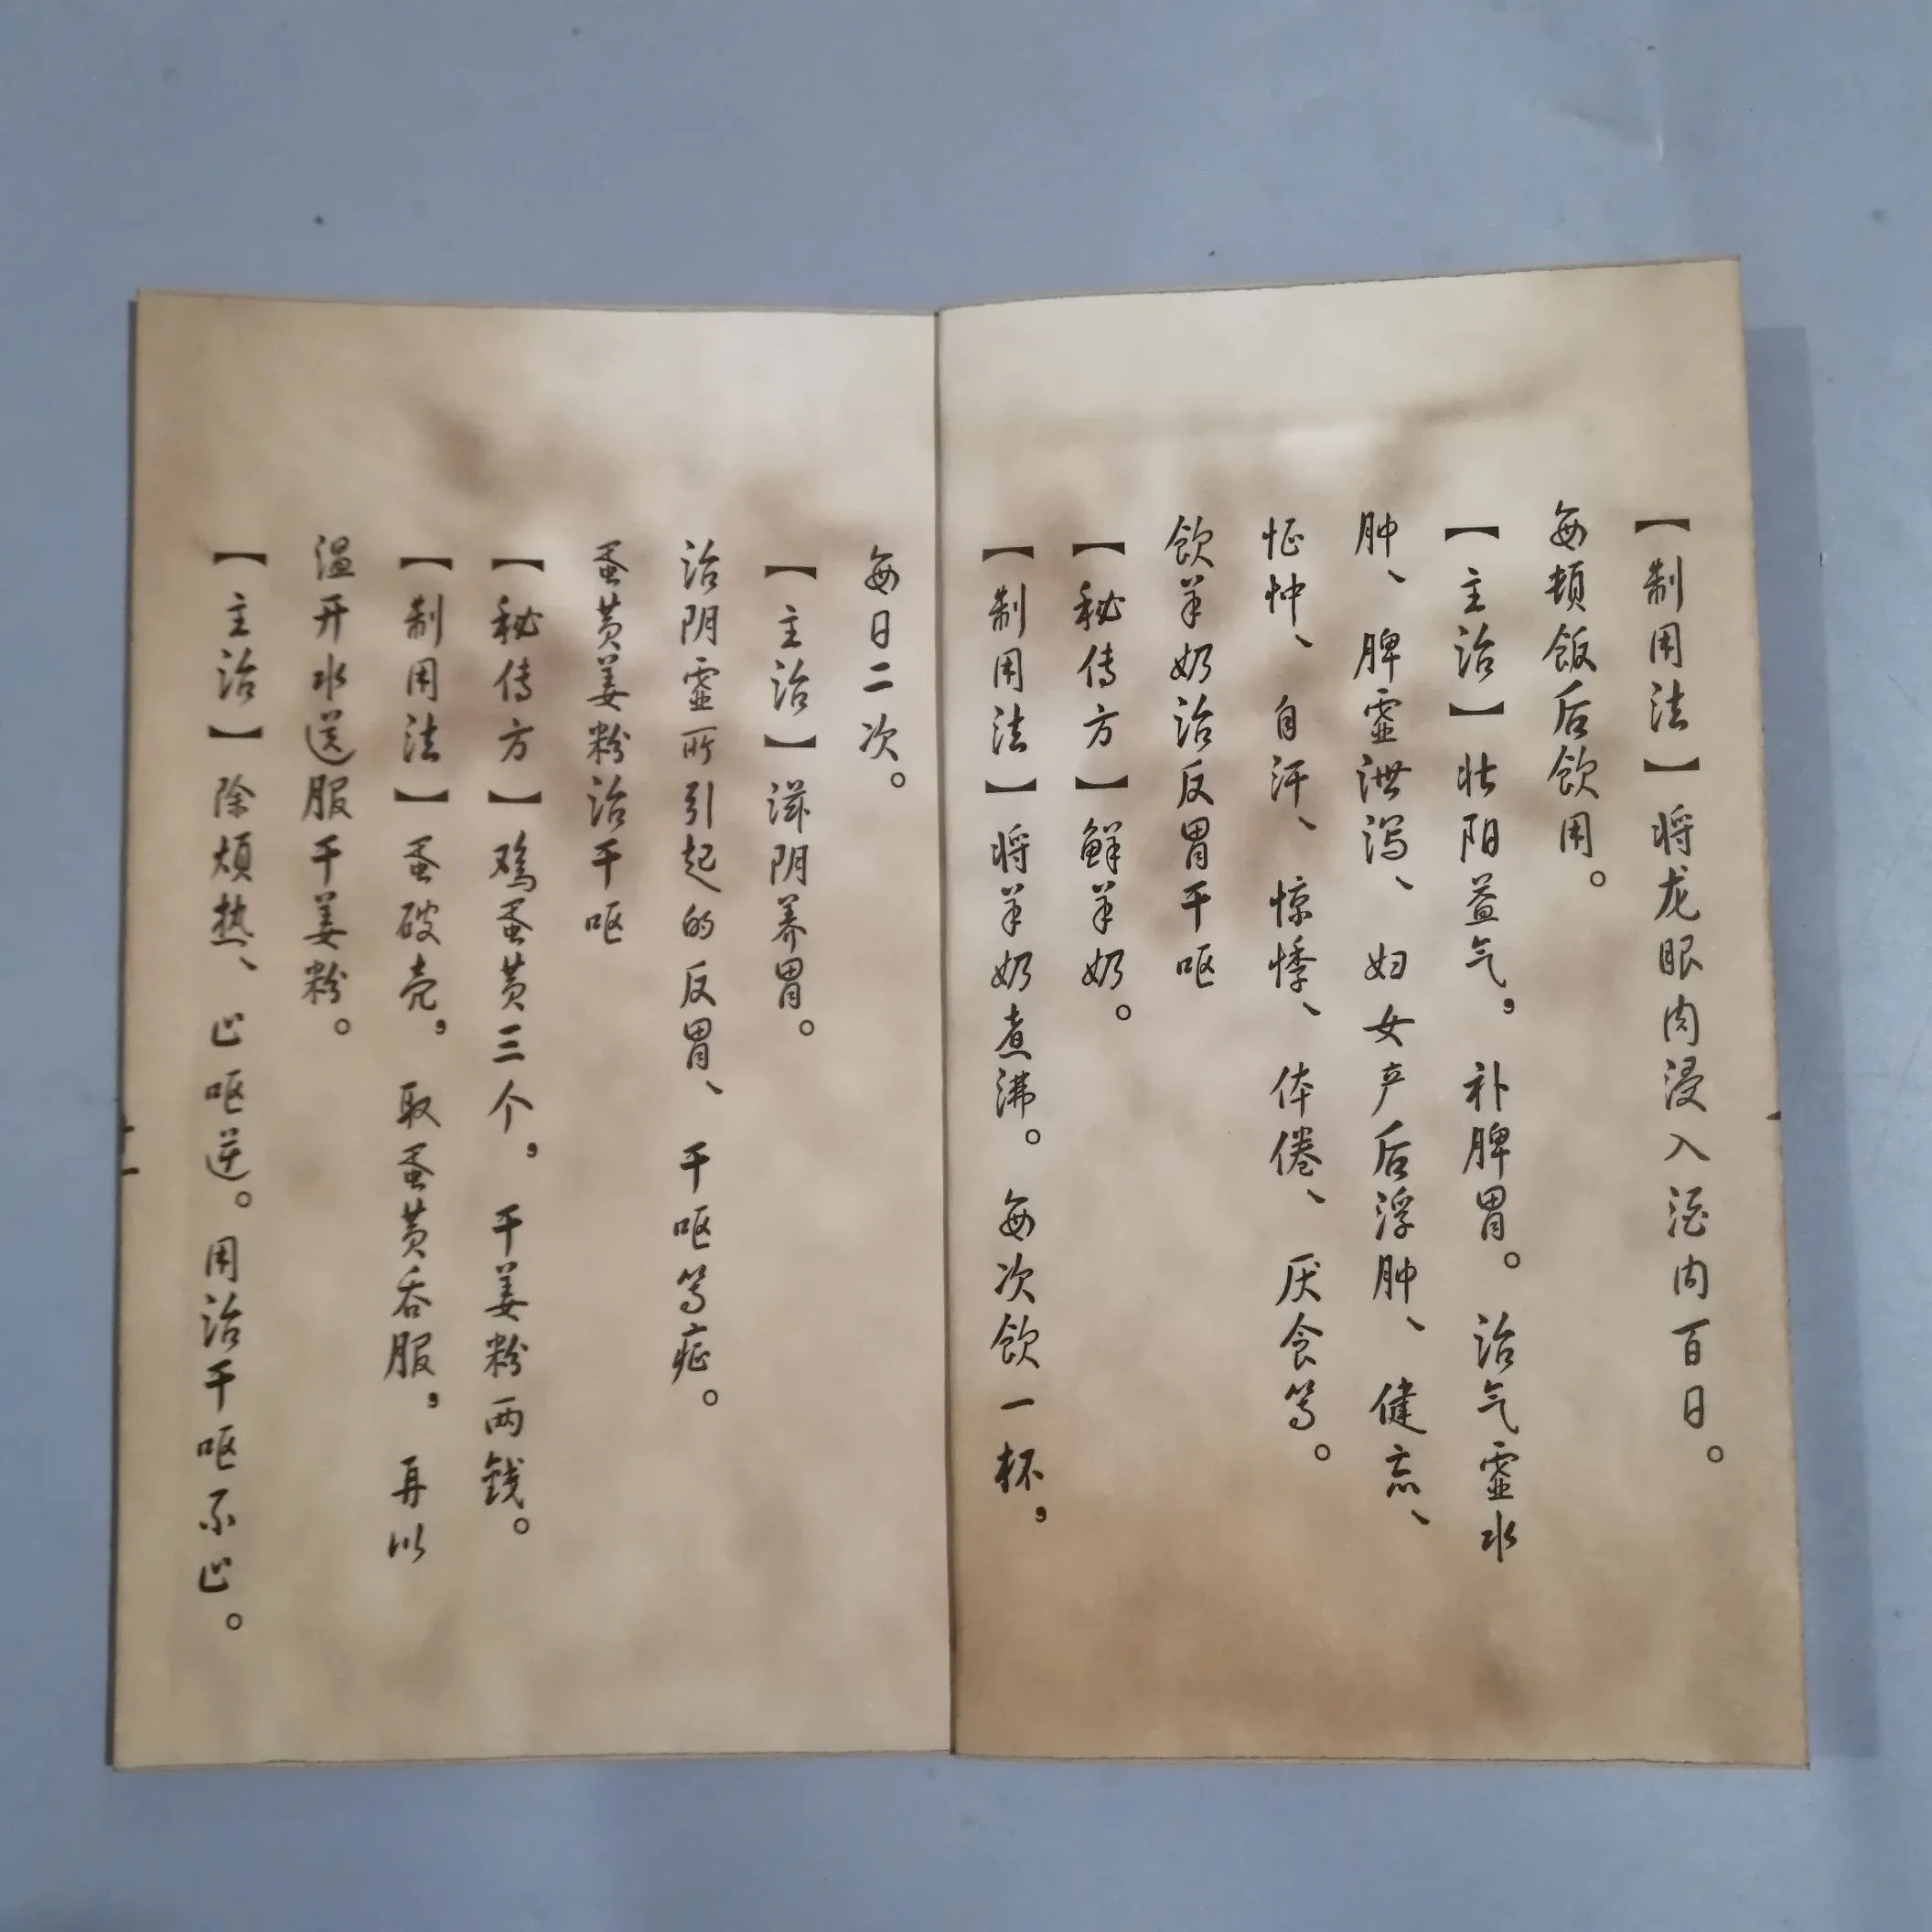 【制用法】将龙眼肉浸入酒内百日。
每顿饭后饮用。
【主治】壮阳益气，补脾胃。治气虚水
肿、脾虚泄泻、妇女产后浮肿、健忘、
怔忡、自汗、惊悸、体倦、厌食等。
饮羊奶治反胃干呕
【秘传方】鲜羊奶。
【制用法】将羊奶煮沸。每次饮一杯，
每日二次。
【主治】滋阴养胃。
治阴虚所引起的反胃、干呕等症。
蛋黄姜粉治干呕
【秘传方】鸡蛋黄三个，干姜粉两钱。
【制用法】蛋破壳，取蛋黄吞服，再以
温开水送服干姜粉。
【主治】除烦热、止呕逆。用治干呕不止。